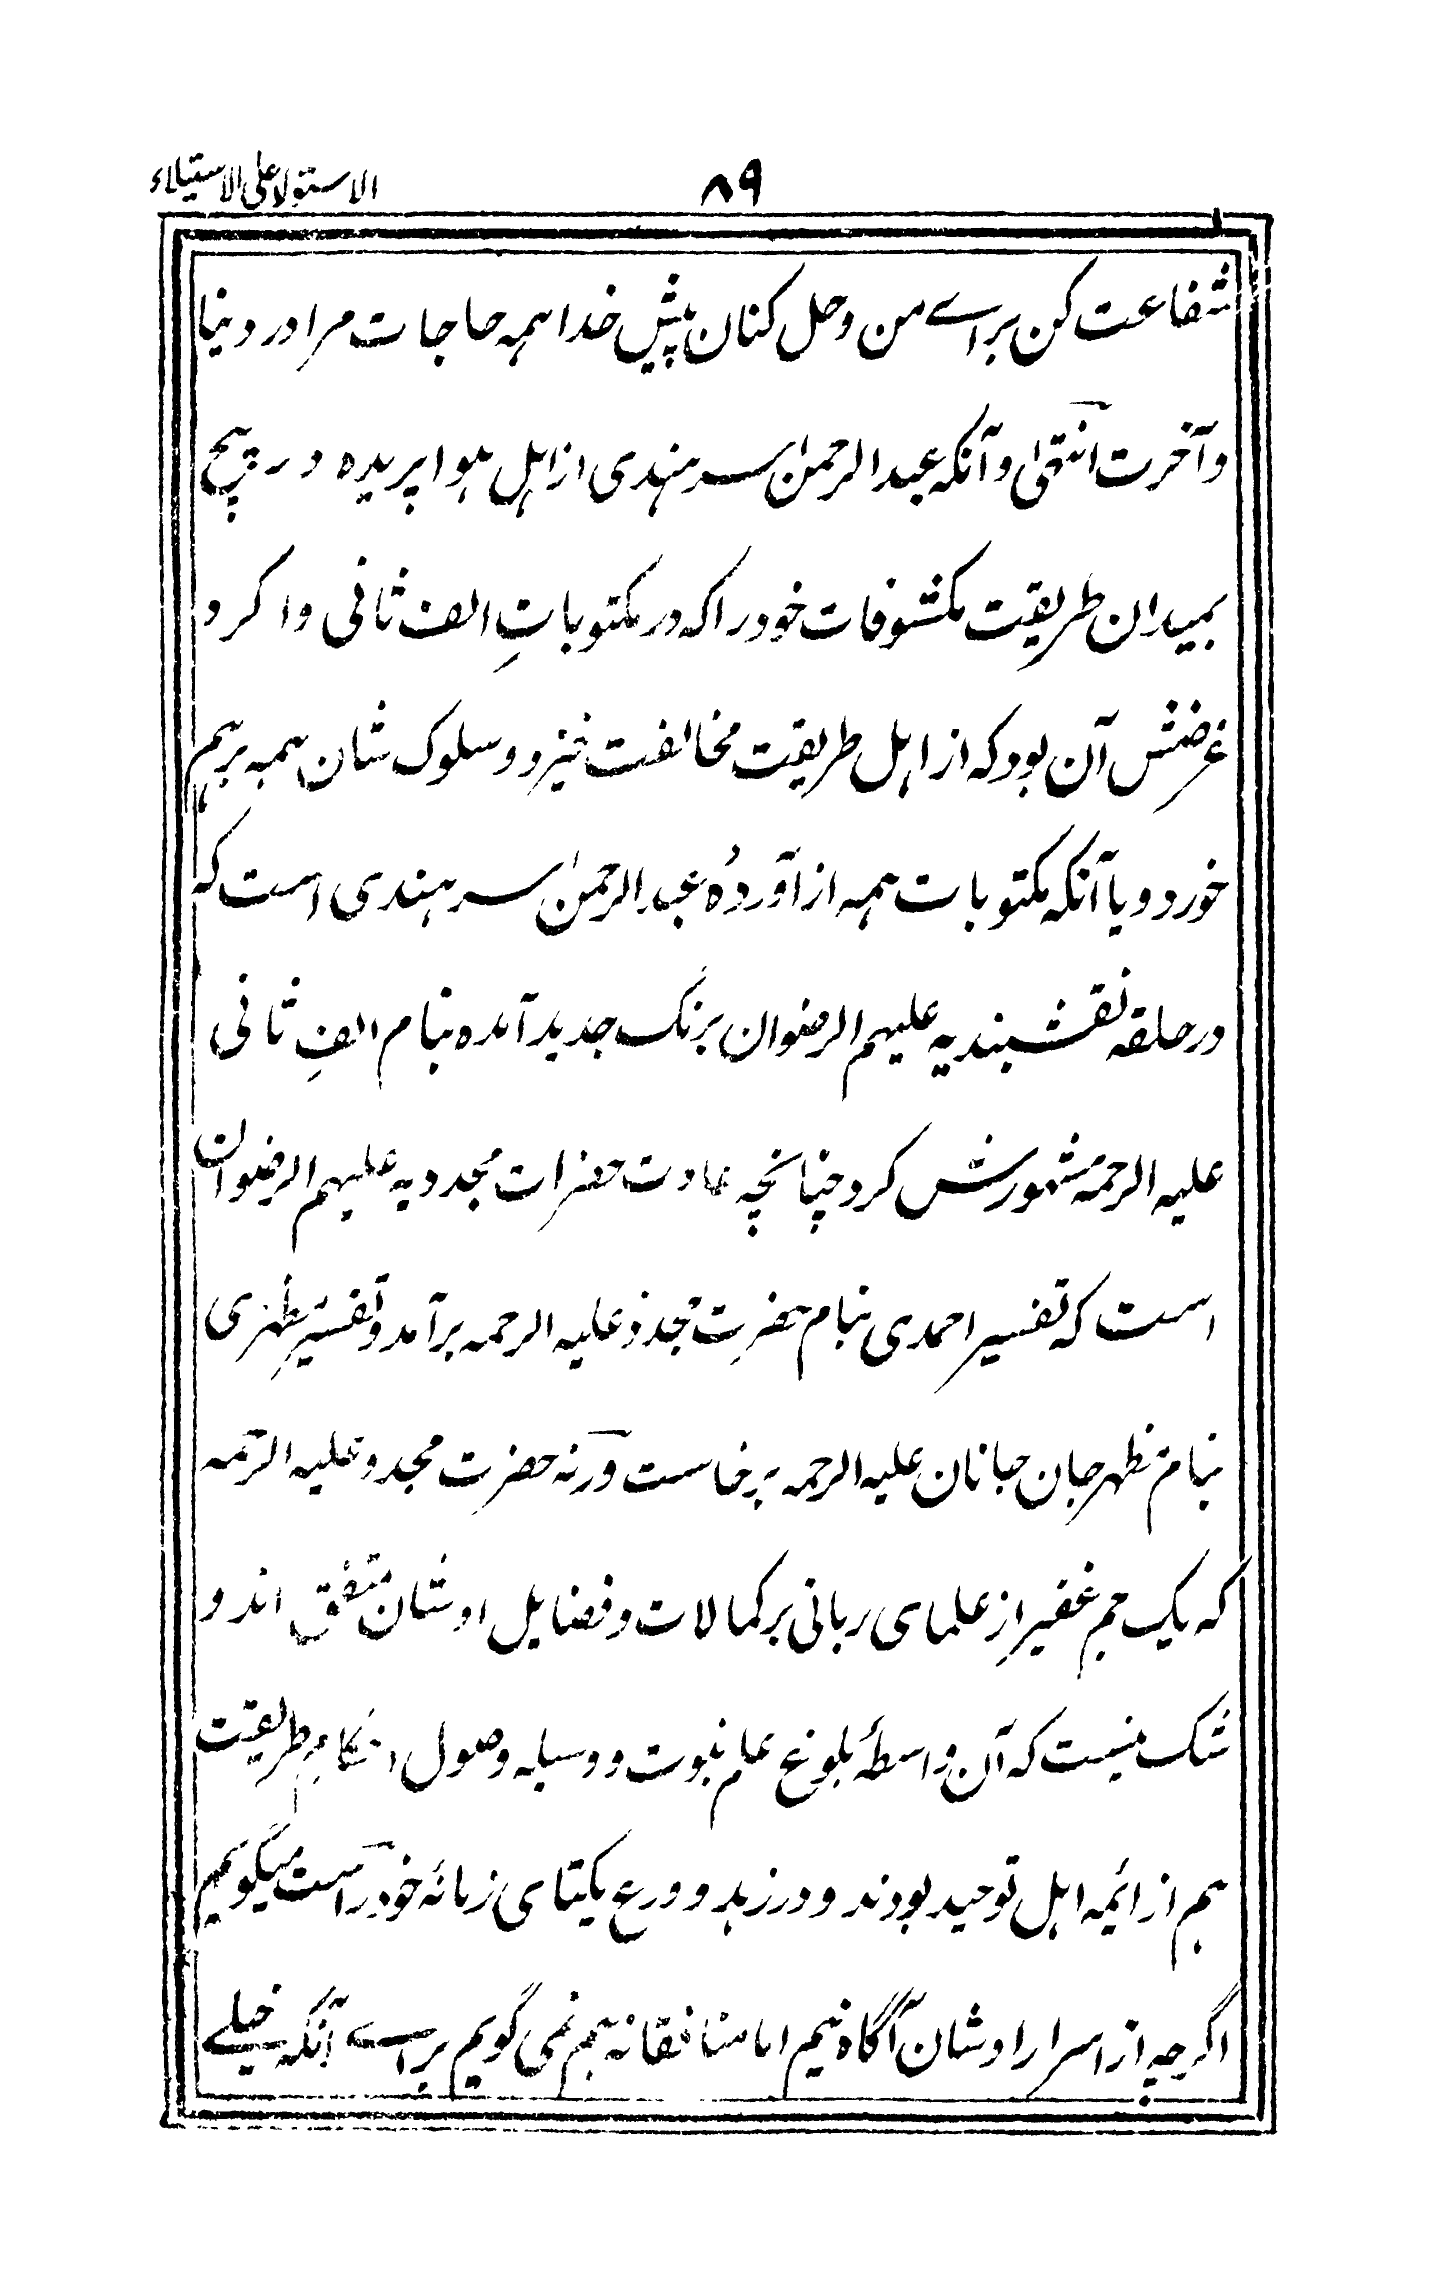 الاستولا على الاستیلاء
۸۹
شفاعت کن براے من و حل کنان پیش خدا همه حاجات مرا در دنیا
و آخرت انتهیٰ و آنکه عبد الرحمٰن سرهندی از اهل هوا پریده در پیچ
بمیدان طریقت مکشوفات خود را که در مکتوباتِ الف ثانی وا کرد
غرضش آن بود که از اهل طریقت مخالفت خیزد و سلوک شان همه برهم
خورد و یا آنکه مکتوبات همه از آوردهٔ عبد الرحمٰن سرهندی است که
در حلقه نقشبندیه علیهم الرضوان برنگ جدید آمده بنام الفِ ثانی
علیه الرحمة مشهورش کرد چنانچه عادت حضرات مجددیه علیهم الرضوان
است که تفسیر احمدی بنام حضرتِ مجدد علیه الرحمه برآمد و تفسیرِ مظهری
بنام مظهر جان جانان علیه الرحمه برخاست ورنه حضرت مجدد علیه الرحمه
که یک جم غفیر از علمای ربانی بر کمالات و فضایل اوشان متفق اند و
شک نیست که آن واسطهٔ بلوغ علم نبوت و وسیله وصول احکامِ طریقت
هم از ائمه اهل توحید بودند و در زهد و ورع یکتای زمانهٔ خود راست میگویم
اگرچه از اسرار اوشان آگاه نیم اما منافقانه هم نمی گویم براے آنکه خیلے